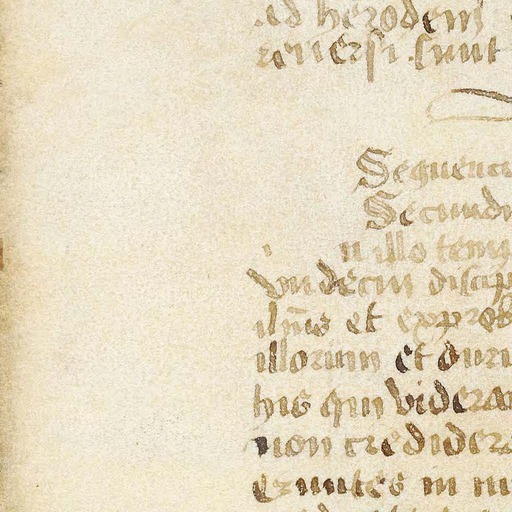 ad herodem
reuersi sunt
Sequenti
Secundu
n illo temp
vndecim discip
illis et exprob
illorum et duri
his qui videran
non credidera
euntes in m